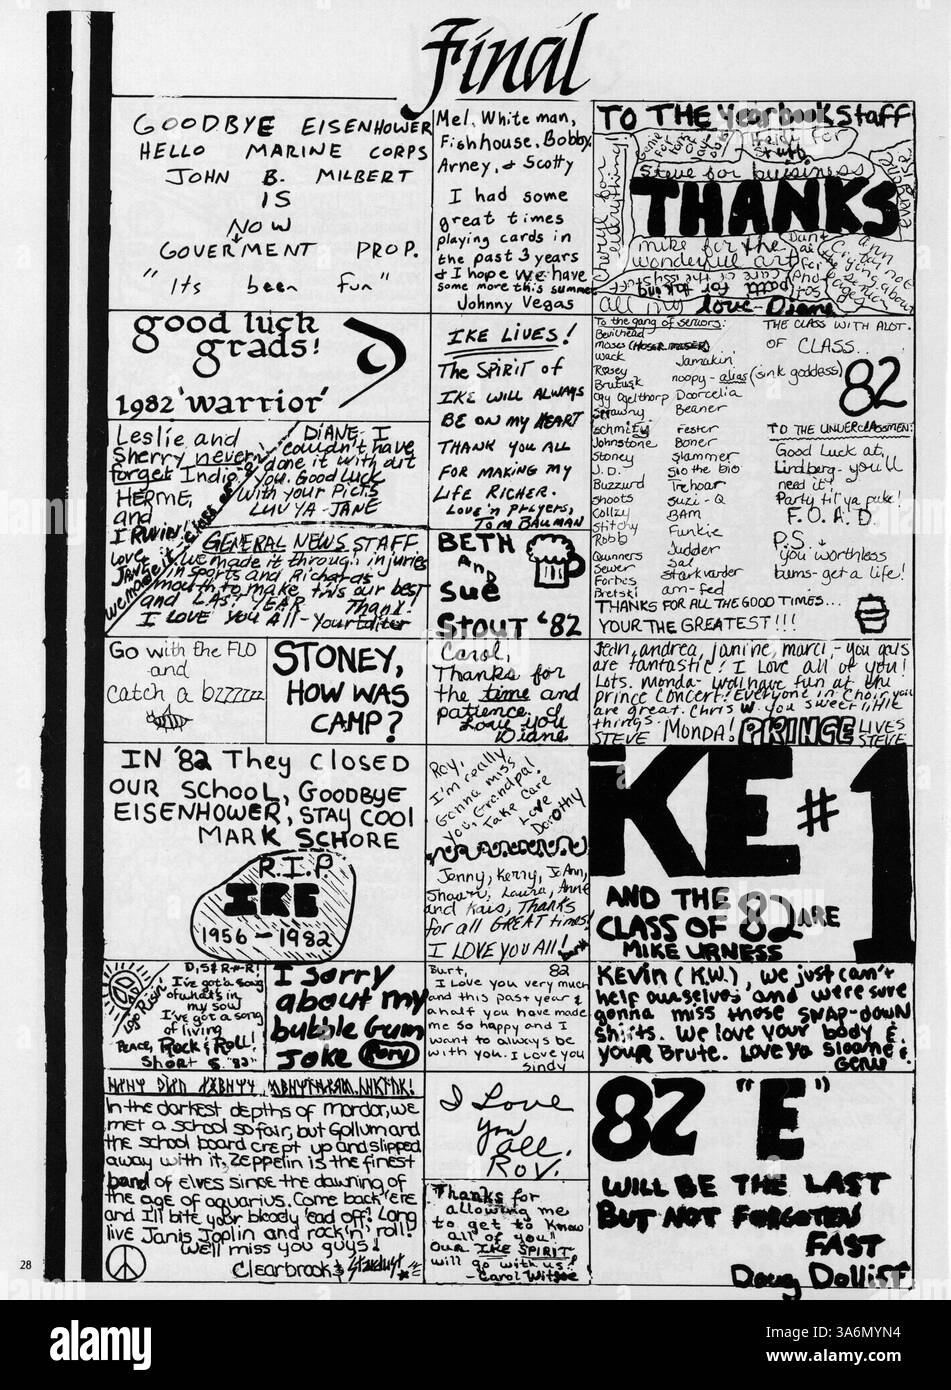 Final
GOODBYE EISENHOWER
HELLO MARINE CORPS
JOHN B. MILBERT
IS
NOW
GOVERMENT PROP.
"Its been fun"
Mel, White man,
Fishhouse, Bobby,
Arney, & Scotty
I had some
great times
playing cards in
the past 3 years
& I hope we have
some more this summer
Johnny Vegas
TO THE Yearbook Staff
Steve for business
THANKS
mike for the
wonderful art
all my love - Diane
good luck
grads!
1982 'warrior'
IKE LIVES!
The SPIRIT of
IKE WILL ALWAYS
BE ON MY HEART
THANK YOU ALL
FOR MAKING MY
LIFE RICHER.
LOVE 'n PRAYERS,
TOM BAUMAN
To the gang of seniors:
Wack Jamakin'
Rosey noopy - alias (sink goddess)
Brutusk Doorcelia
Ogy Ogelthorp Beaner
Schmity Fester
Johnstone Boner
Stoney Slammer
J.D. Slo the bio
Buzzurd Trehoar
Shoots Suzi-Q
Collzy BAM
Stitchy Funkie
Robb Judder
Qunners Sal
Sewer Starkvarder
Forbes am-fed
Bretski
THANKS FOR ALL THE GOOD TIMES...
YOUR THE GREATEST!!!
THE CLASS WITH ALOT.
OF CLASS...
82
TO THE UNDERCLASSMEN:
Good Luck at,
Lindberg - you'll
need it!
Party til ya puke!
F.O.A.D.
P.S.
You worthless
bums - get a life!
Leslie and
Sherry never
forget Indio
HERME,
and
IRWIN!
Love,
JANE
DIANE: I
couldn't have
done it with out
you. Good Luck
with your Pict's
LUV YA - JANE
GENERAL NEWS STAFF
we made it through injuries
in sports and Richards
mouth to make this our best
and LAST YEAR. Thank!
I LOVE YOU All - Your Editor
BETH
And
Sue
STOUT '82
Go with the FLO
and
catch a bzzzzzz
STONEY,
HOW WAS
CAMP?
Carol,
Thanks for
the time and
patience. I
Love you
Diane
Jean, andrea, janine, marci, - you guys
are fantastic! I love all of you!
Lots. Monda - We'll have fun at the
Prince Concert! Everyone in Choir, you
are great. Chris W. you sweet little
things.
STEVE MONDA! PRINCE LIVES
STEVE
IN '82 They CLOSED
OUR SCHOOL, GOODBYE
EISENHOWER, STAY COOL
MARK SCHORE
R.I.P.
IKE
1956 - 1982
Roy,
I'm really
Gonna miss
you, Grandpa!
Take Care
Love
Dorothy
Jenny, Kerry, JeAnn,
Shawn, Laura, Anne
and Kris, Thanks
for all GREAT times!
I LOVE YOU ALL!
IKE # 1
AND THE
CLASS OF 82 ARE
MIKE URNESS
D, S & R-N-R!
I've got a song
of what's in
my sow
I've got a song
of living
PEACE, ROCK & ROLL!
Short S. "82"
I Sorry
about my
bubble Gum
Joke Rory
Burt, 82
I Love you very much
and this past year &
a half you have made
me so happy and I
want to always be
with you. I Love you
Sindy
KEVIN (K.W.), we just can't
help ourselves and we're sure
gonna miss those SNAP-DOWN
Shirts. We love your body &
your Brute. Love Ya Sloane &
Genu
In the darkest depths of mordor, we
met a school so fair, but Gollum and
the school board crept up and slipped
away with it, Zeppelin is the finest
band of elves since the dawning of
the age of aquarius. Come back 'ere
and I'll bite your bloody 'ead off! Long
live Janis Joplin and rock'n'roll!
We'll miss you guys!
Clearbrook & Stardust
I Love
you
all.
ROV.
Thanks for
allowing me
to get to know
all of you!
Our IKE SPIRIT
will go with us!
- Carol Witsoe
82 "E"
WILL BE THE LAST
BUT NOT FORGOTEN
FAST
Doug Dolliff
28
alamy
Image ID: 3A6MYN4
www.alamy.com